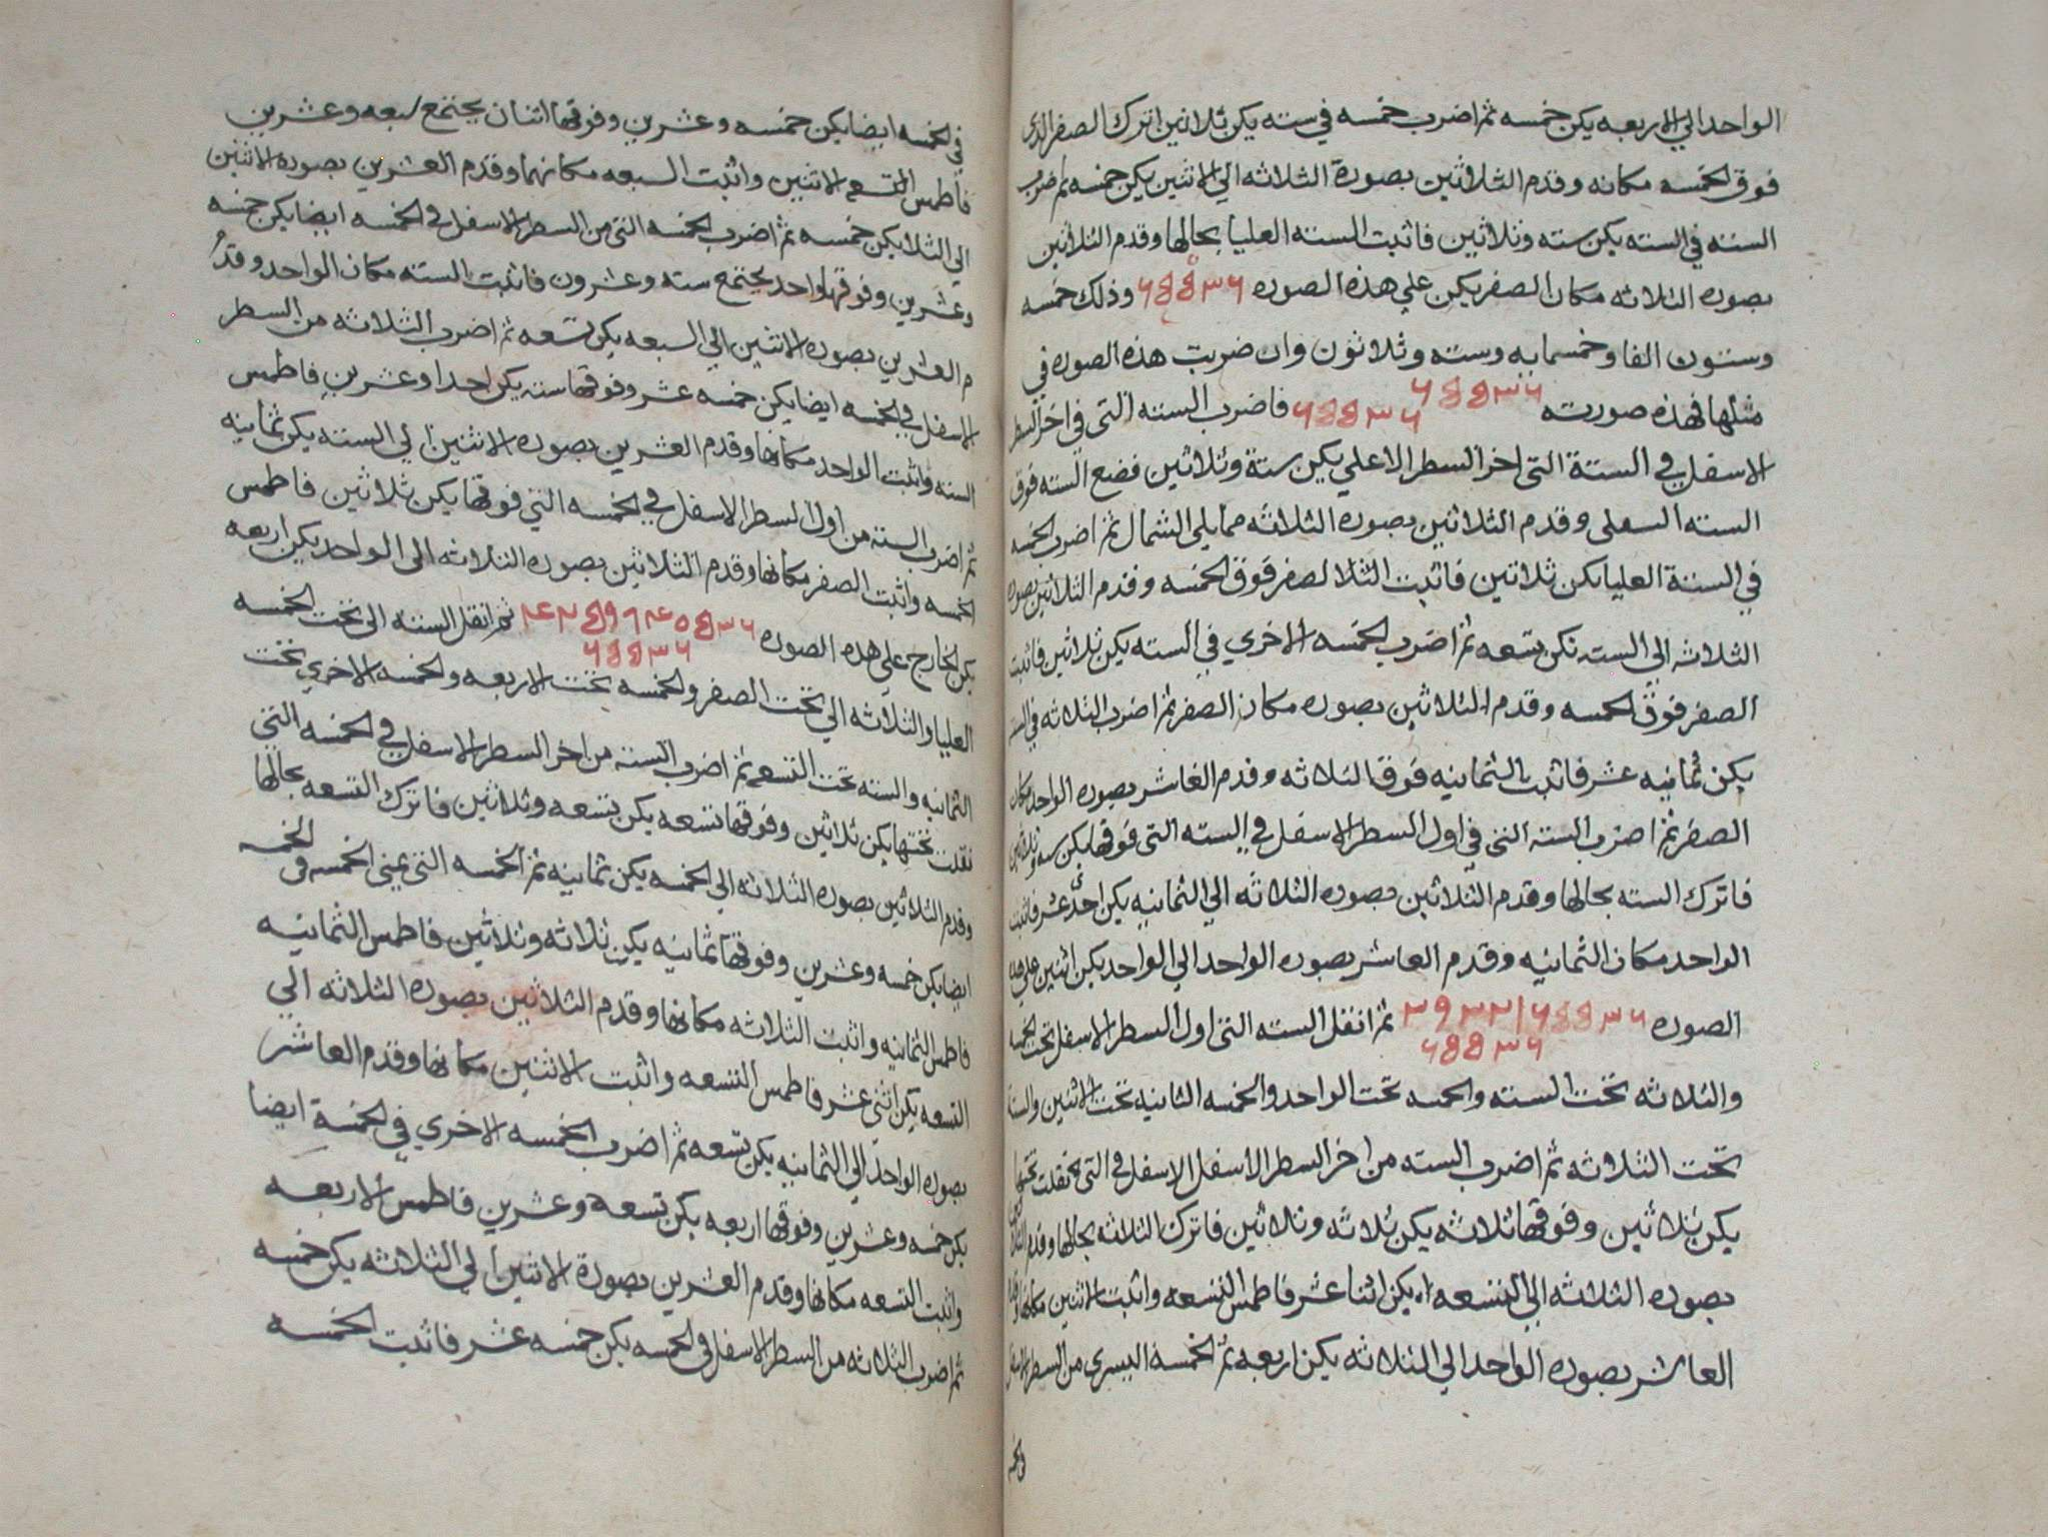 الواحد الي الاربعه يكن خمسه ثم اضرب خمسه في سته يكن ثلاثين اترك الصفر الذي
فوق الخمسه مكانه وقدم الثلاثين بصورة الثلاثه الي الاثنين يكن خمسه ثم ضرب
السته في السته يكن سته وثلاثين فاثبت السته العليا بحالها وقدم الثلاثين
بصوره الثلاثه مكان الصفر يكن علي هذه الصوره ٦٥٥٣٦ وذلك خمسه
وستون الفا وخمسمايه وسته وثلاثون وان ضربت هذه الصوره في
مثلها فهذه صورته ٦٥٥٣٦ ٦٥٥٣٦ فاضرب السته التي في اخر السطر
الاسفل في الستة التي اخر السطر الاعلي يكن ستة وثلاثين فضع السته فوق
السته السفلي وقدم الثلاثين بصوره الثلاثه ممايلي الشمال ثم اضرب الخمسه
في الستة العليا يكن ثلاثين فاثبت الصفر فوق الخمسه وقدم الثلاثين بصوره
الثلاثه الي السته تكن تسعه ثم اضرب الخمسه الاخري في السته يكن ثلاثين فاثبت
الصفر فوق الخمسه وقدم الثلاثين بصوره مكان الصفر ثم اضرب الثلاثه في السته
يكن ثمانيه عشر فاثبت الثمانيه فوق الثلاثه وقدم العاشر بصوره الواحد مكان
الصفر ثم اضرب السته التي في اول السطر الاسفل في السته التي فوقها يكن سته وثلاثين
فاترك السته بحالها وقدم الثلاثين بصوره الثلاثه الي الثمانيه يكن احدي عشر فاثبت
الواحد مكان الثمانيه وقدم العاشر بصوره الواحد الي الواحد يكن اثنين علي هذه
الصوره ٣٩٣٢١٦٥٥٣٦ ثم انقل السته التي اول السطر الاسفل تحت الخمسه
٦٥٥٣٦
والثلاثه تحت السته والخمسه تحت الواحد والخمسه الثانيه تحت الاثنين والسته
تحت الثلاثه ثم اضرب السته من اخر السطر الاسفل الاسفل في التي نقلت تحتها
يكن ثلاثين وفوقها ثلاثه يكن ثلاثه وثلاثين فاترك الثلاثه بحالها وقدم
بصوره الثلاثه الي التسعه يكن اثنا عشر فاطمس التسعه واثبت الاثنين مكانها وقدم
العاشر بصوره الواحد الي الثلاثه يكن اربعه ثم الخمسه اليسري من السطر الاسفل
في الخمسه
في الخمسه ايضا يكن خمسه وعشرين وفوقها اثنان يجتمع سبعه وعشرين
فاطمس الاثنين واثبت السبعه مكانهما وقدم العشرين بصوره الاثنين
الي الثلا يكن خمسه ثم اضرب الخمسه التي من السطر الاسفل في الخمسه ايضا يكن خمسه
وعشرين وفوقها واحد يجتمع سته وعشرون فاثبت السته مكان الواحد وقد
م العشرين بصوره الاثنين الي السبعه يكن تسعه ثم اضرب الثلاثه من السطر
الاسفل في الخمسه ايضا يكن خمسه عشر وفوقها سته يكن احدا وعشرين فاطمس
السته واثبت الواحد مكانها وقدم العشرين بصوره الاثنين الي السته يكن ثمانيه
ثم اضرب السته من اول السطر الاسفل في الخمسه التي فوقها يكن ثلاثين فاطمس
الخمسه واثبت الصفر مكانها وقدم الثلاثين بصوره الثلاثه الي الواحد يكن اربعه
يكن الخارج علي هذه الصوره ثم انقل السته الي تحت الخمسه
٦٥٥٣٦
العليا والثلاثه الي تحت الصفر والخمسه تحت الاربعه والخمسه الاخري تحت
الثمانيه والسته تحت التسعه ثم اضرب السته من اخر السطر الاسفل في الخمسه التي
نقلت تحتها يكن ثلاثين وفوقها تسعه يكن تسعه وثلاثين فاترك التسعه بحالها
وقدم الثلاثين بصوره الثلاثه الي الخمسه يكن ثمانيه ثم الخمسه التي يمني الخمسه في الخمسه
ايضا يكن خمسه وعشرين وفوقها ثمانيه يكن ثلاثه وثلاثين فاطمس الثمانيه
فاطمس الثمانيه واثبت الثلاثه مكانها وقدم الثلاثين بصوره الثلاثه الي
التسعه يكن اثني عشر فاطمس التسعه واثبت الاثنين مكانها وقدم العاشر
بصوره الواحد الي الثمانيه يكن تسعه ثم اضرب الخمسه الاخري في الخمسة ايضا
يكن خمسه وعشرين وفوقها اربعه يكن تسعه وعشرين فاطمس الاربعه
واثبت التسعه مكانها وقدم العشرين بصورة الاثنين الي الثلاثه يكن خمسه
ثم اضرب الثلاثه من السطر الاسفل في الخمسه يكن خمسه عشر فاثبت الخمسه